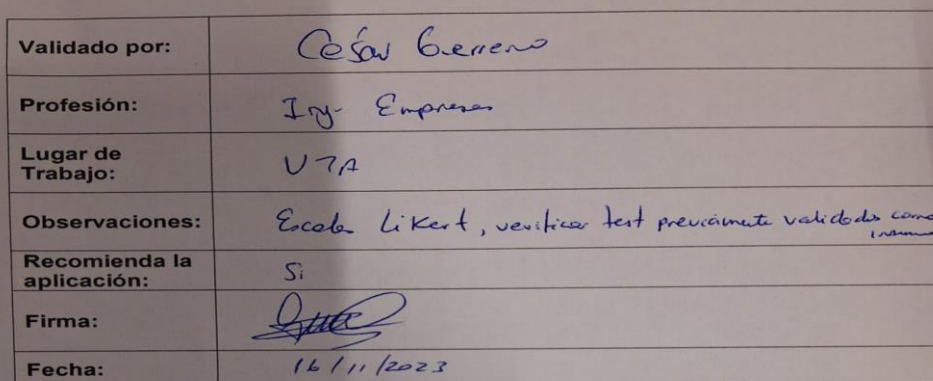 Validado por: César Guerrero
Profesión: Ing. Empresas
Lugar de
Trabajo: UTA
Observaciones: Escala Likert, verificar test previamente validados como
Recomienda la
aplicación: Si
Firma:
Fecha: 16/11/2023